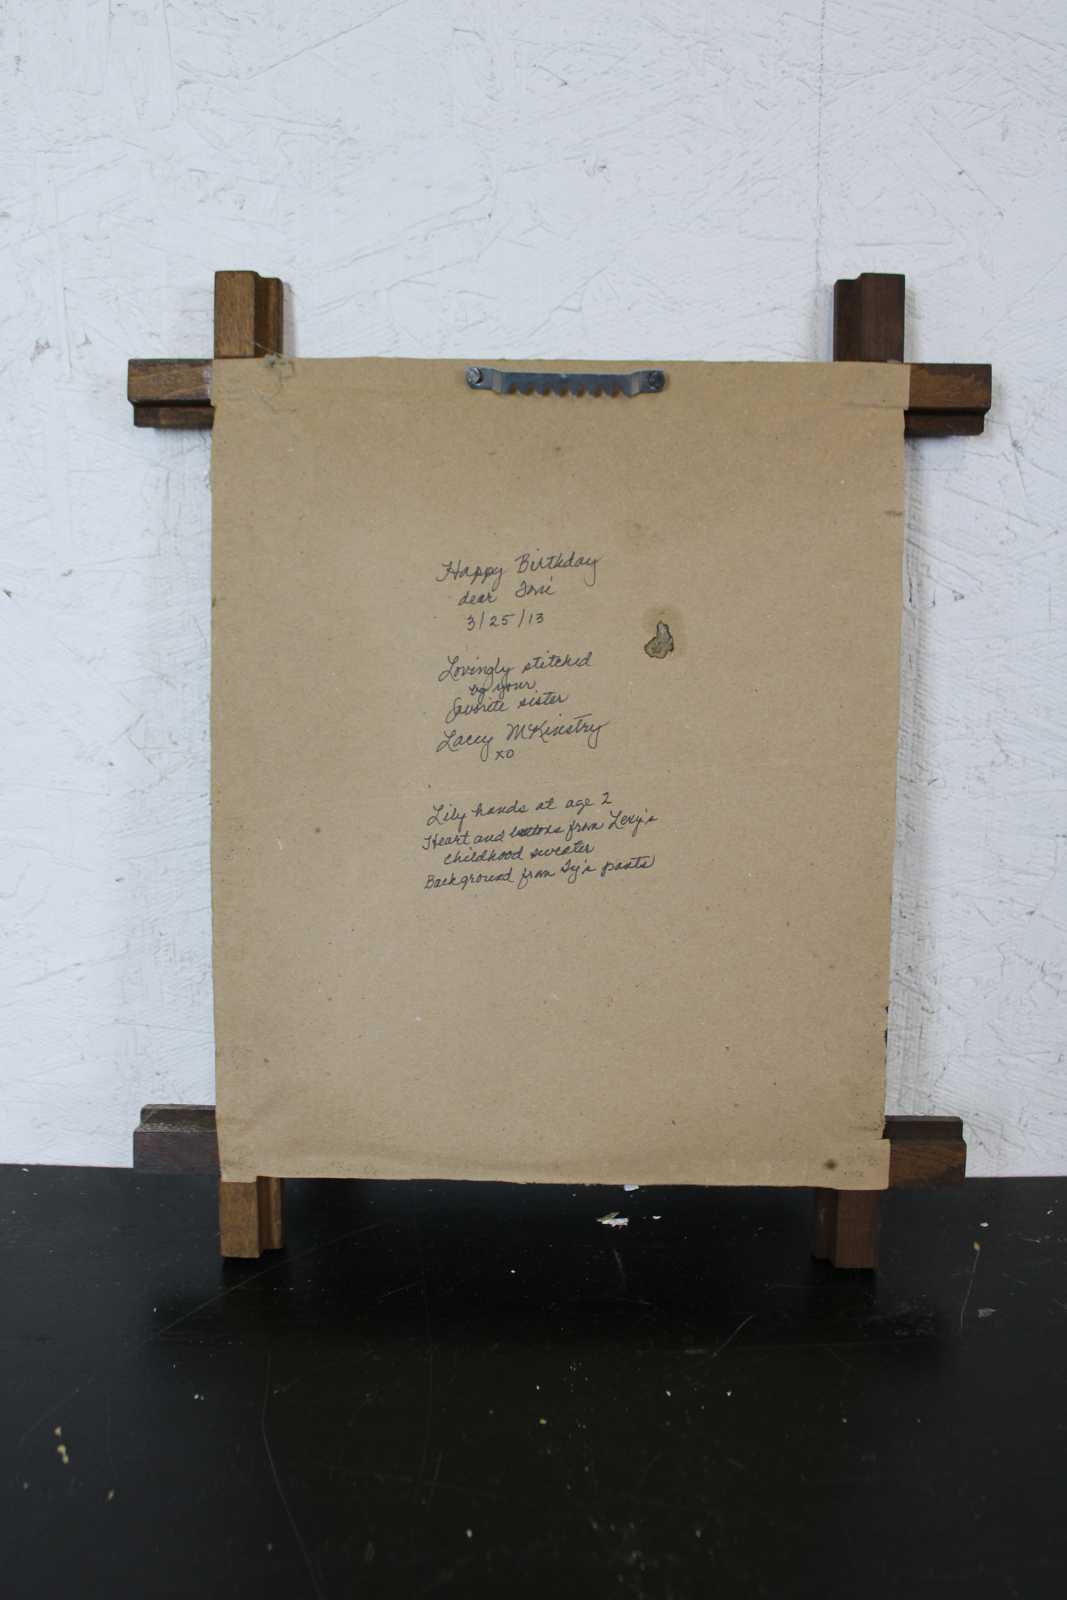 Happy Birthday
dear Toni
3/25/13
Lovingly stitched
by your
favorite sister
Lacey McKinstry
xo
Lily hands at age 2
Heart and buttons from Lexy's
childhood sweater
Background from Ty's pants